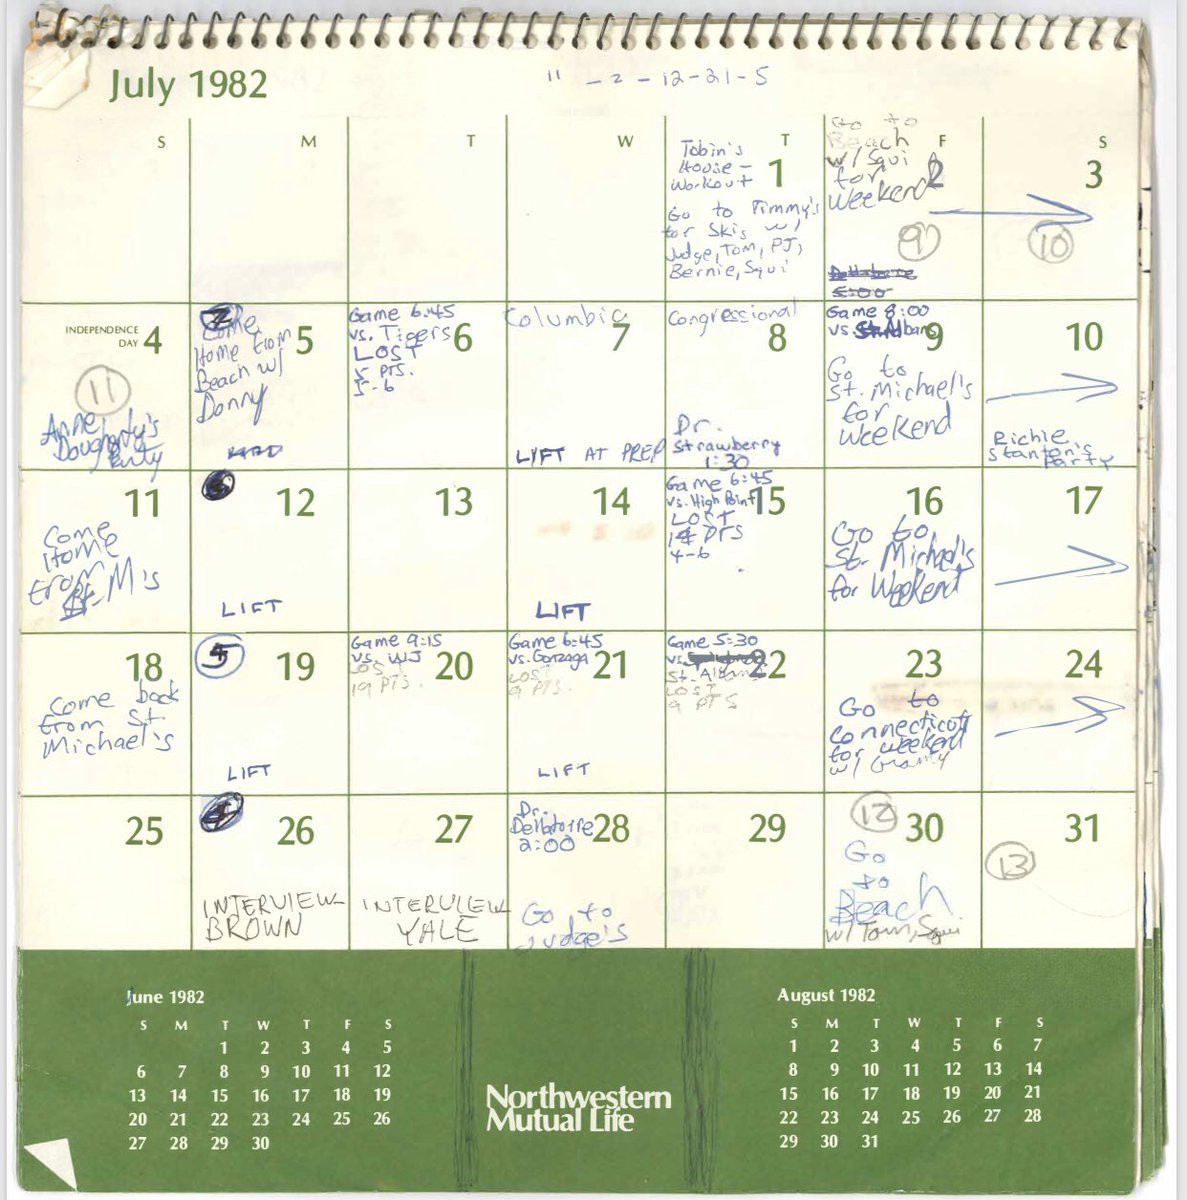 July 1982
" - 2 - 12 - 21 - 5
S M T W T F S
Tobin's
House -
Workout
1
Go to Timmy's
for Skis w/
Judge, Tom, PJ,
Bernie, Squi
Go to
Beach
w/ Squi
for
Weekend
2
9
5:00
3
10
INDEPENDENCE
DAY 4
11
Anne
Dougherty's
Party
5
Come
Home from
Beach w/
Donny
Game 6:45
vs. Tigers
6
LOST
5 PTS.
5-6
Columbia
7
LIFT AT PREP
Congressional
8
Dr.
Strawberry
1:30
Game 8:00
vs. St. Albans
9
Go to
St. Michael's
for
Weekend
10
Richie
Stanton's
Party
11
Come
Home
from
St. M's
12
LIFT
13
14
LIFT
Game 6:45
vs. High Point
15
LOST
14 PTS
4-6
16
Go to
St. Michael's
for Weekend
17
18
Come back
from St.
Michael's
19
LIFT
Game 9:15
vs. WJ
20
LOST
19 PTS.
Game 6:45
vs. Gonzaga
21
LOST
9 PTS.
LIFT
Game 5:30
vs.
22
St. Albans
LOST
9 PTS
23
Go to
Connecticut
for weekend
w/ Grammy
24
25
26
INTERVIEW-
BROWN
27
INTERVIEW-
YALE
Dr.
Dellatorre
2:00
28
Go to
Judge's
29
12
30
Go
to
Beach
w/ Tom, Squi
31
13
June 1982
S M T W T F S
1 2 3 4 5
6 7 8 9 10 11 12
13 14 15 16 17 18 19
20 21 22 23 24 25 26
27 28 29 30
Northwestern
Mutual Life
August 1982
S M T W T F S
1 2 3 4 5 6 7
8 9 10 11 12 13 14
15 16 17 18 19 20 21
22 23 24 25 26 27 28
29 30 31